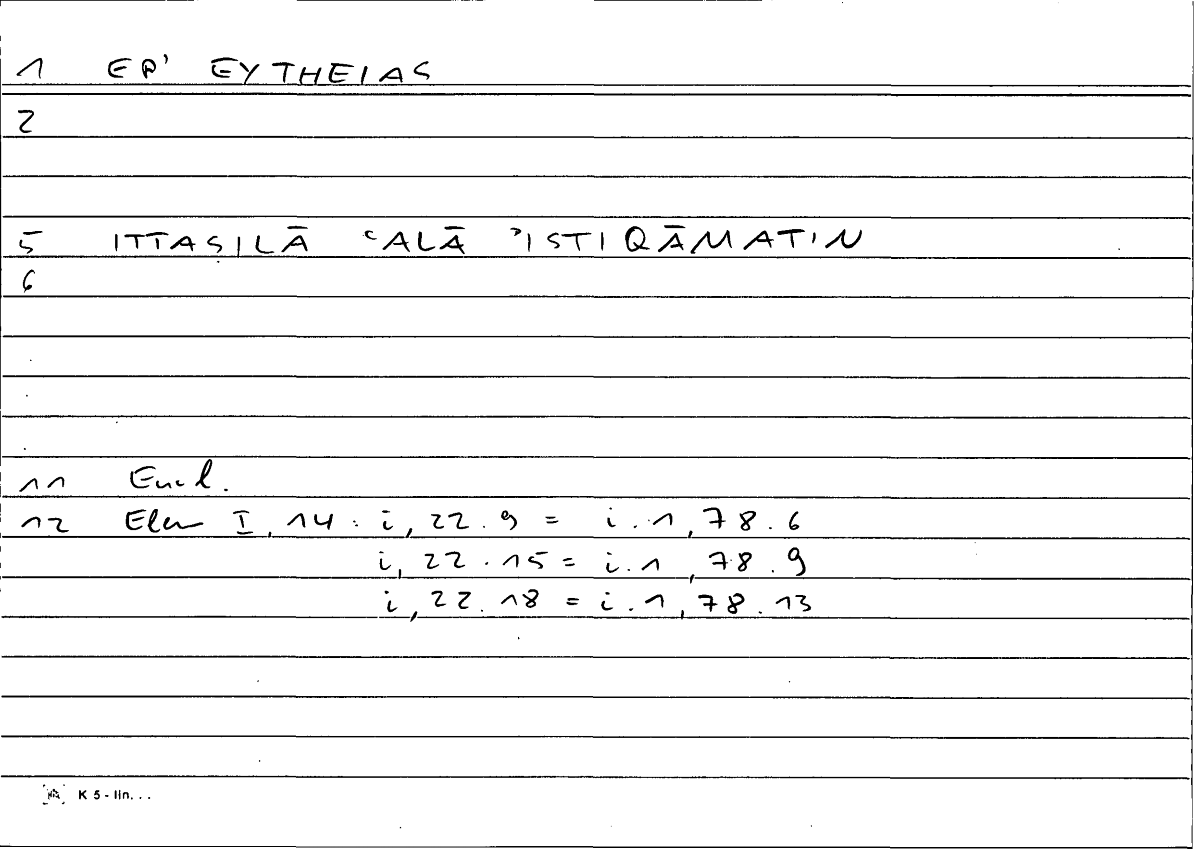 1 EP' EYTHEIAS
2
5 ITTASILĀ ʿALĀ ʾISTIQĀMATIN
6
11 Eucl.
12 Elem I, 14: i, 22.9 = i.1, 78.6
i, 22.15 = i.1, 78.9
i, 22.18 = i.1, 78.13
K 5 - lin...